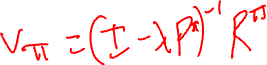 V_π = (I - λP^π)^{-1} R^π